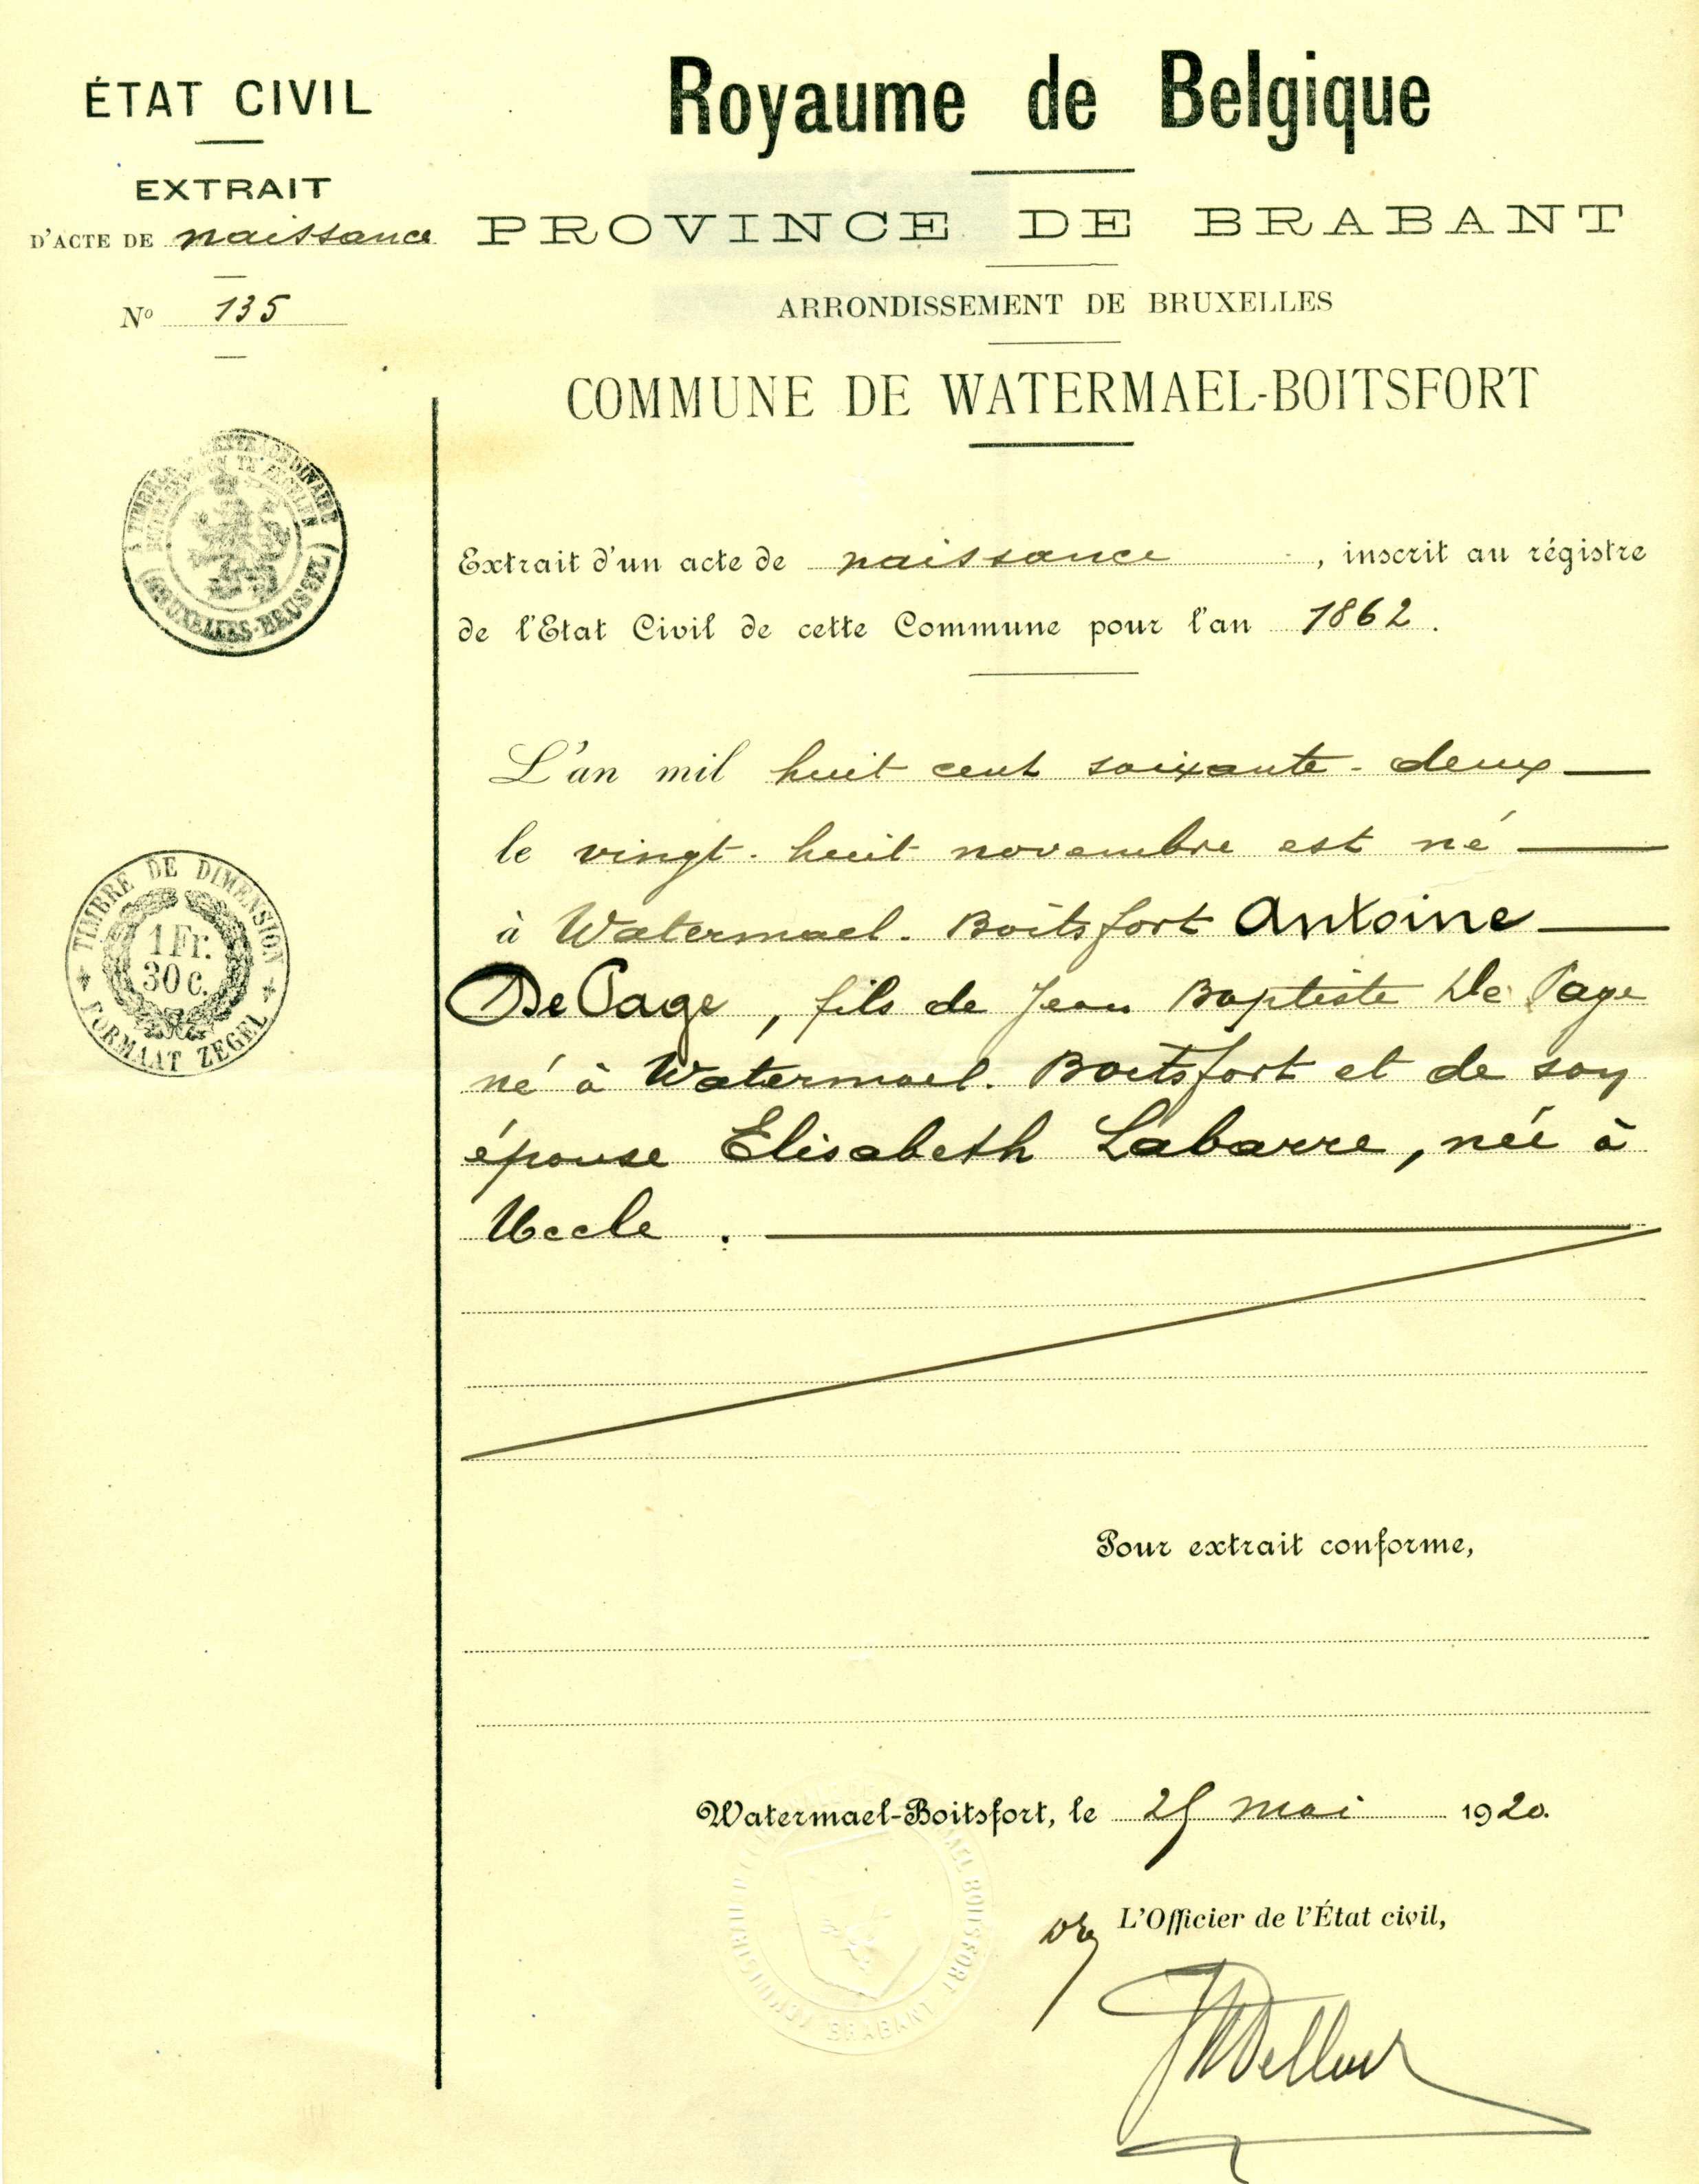 ÉTAT CIVIL
EXTRAIT
D'ACTE DE naissance
Nº 135
Royaume de Belgique
PROVINCE DE BRABANT
ARRONDISSEMENT DE BRUXELLES
COMMUNE DE WATERMAEL-BOITSFORT
(BRUXELLES-BRUSSEL)
TIMBRE DE DIMENSION
1 Fr.
30 c.
FORMAAT ZEGEL
Extrait d'un acte de naissance, inscrit au régistre
de l'Etat Civil de cette Commune pour l'an 1862.
L'an mil huit cent soixante-deux
le vingt-huit novembre est né
à Watermael-Boitsfort Antoine
De Page, fils de Jean Baptiste De Page
né à Watermael-Boitsfort et de son
épouse Elisabeth Labarre, née à
Uccle.
Pour extrait conforme,
Watermael-Boitsfort, le mai 1920.
L'Officier de l'État civil,
WATERMAEL BOITSFORT
BRABANT